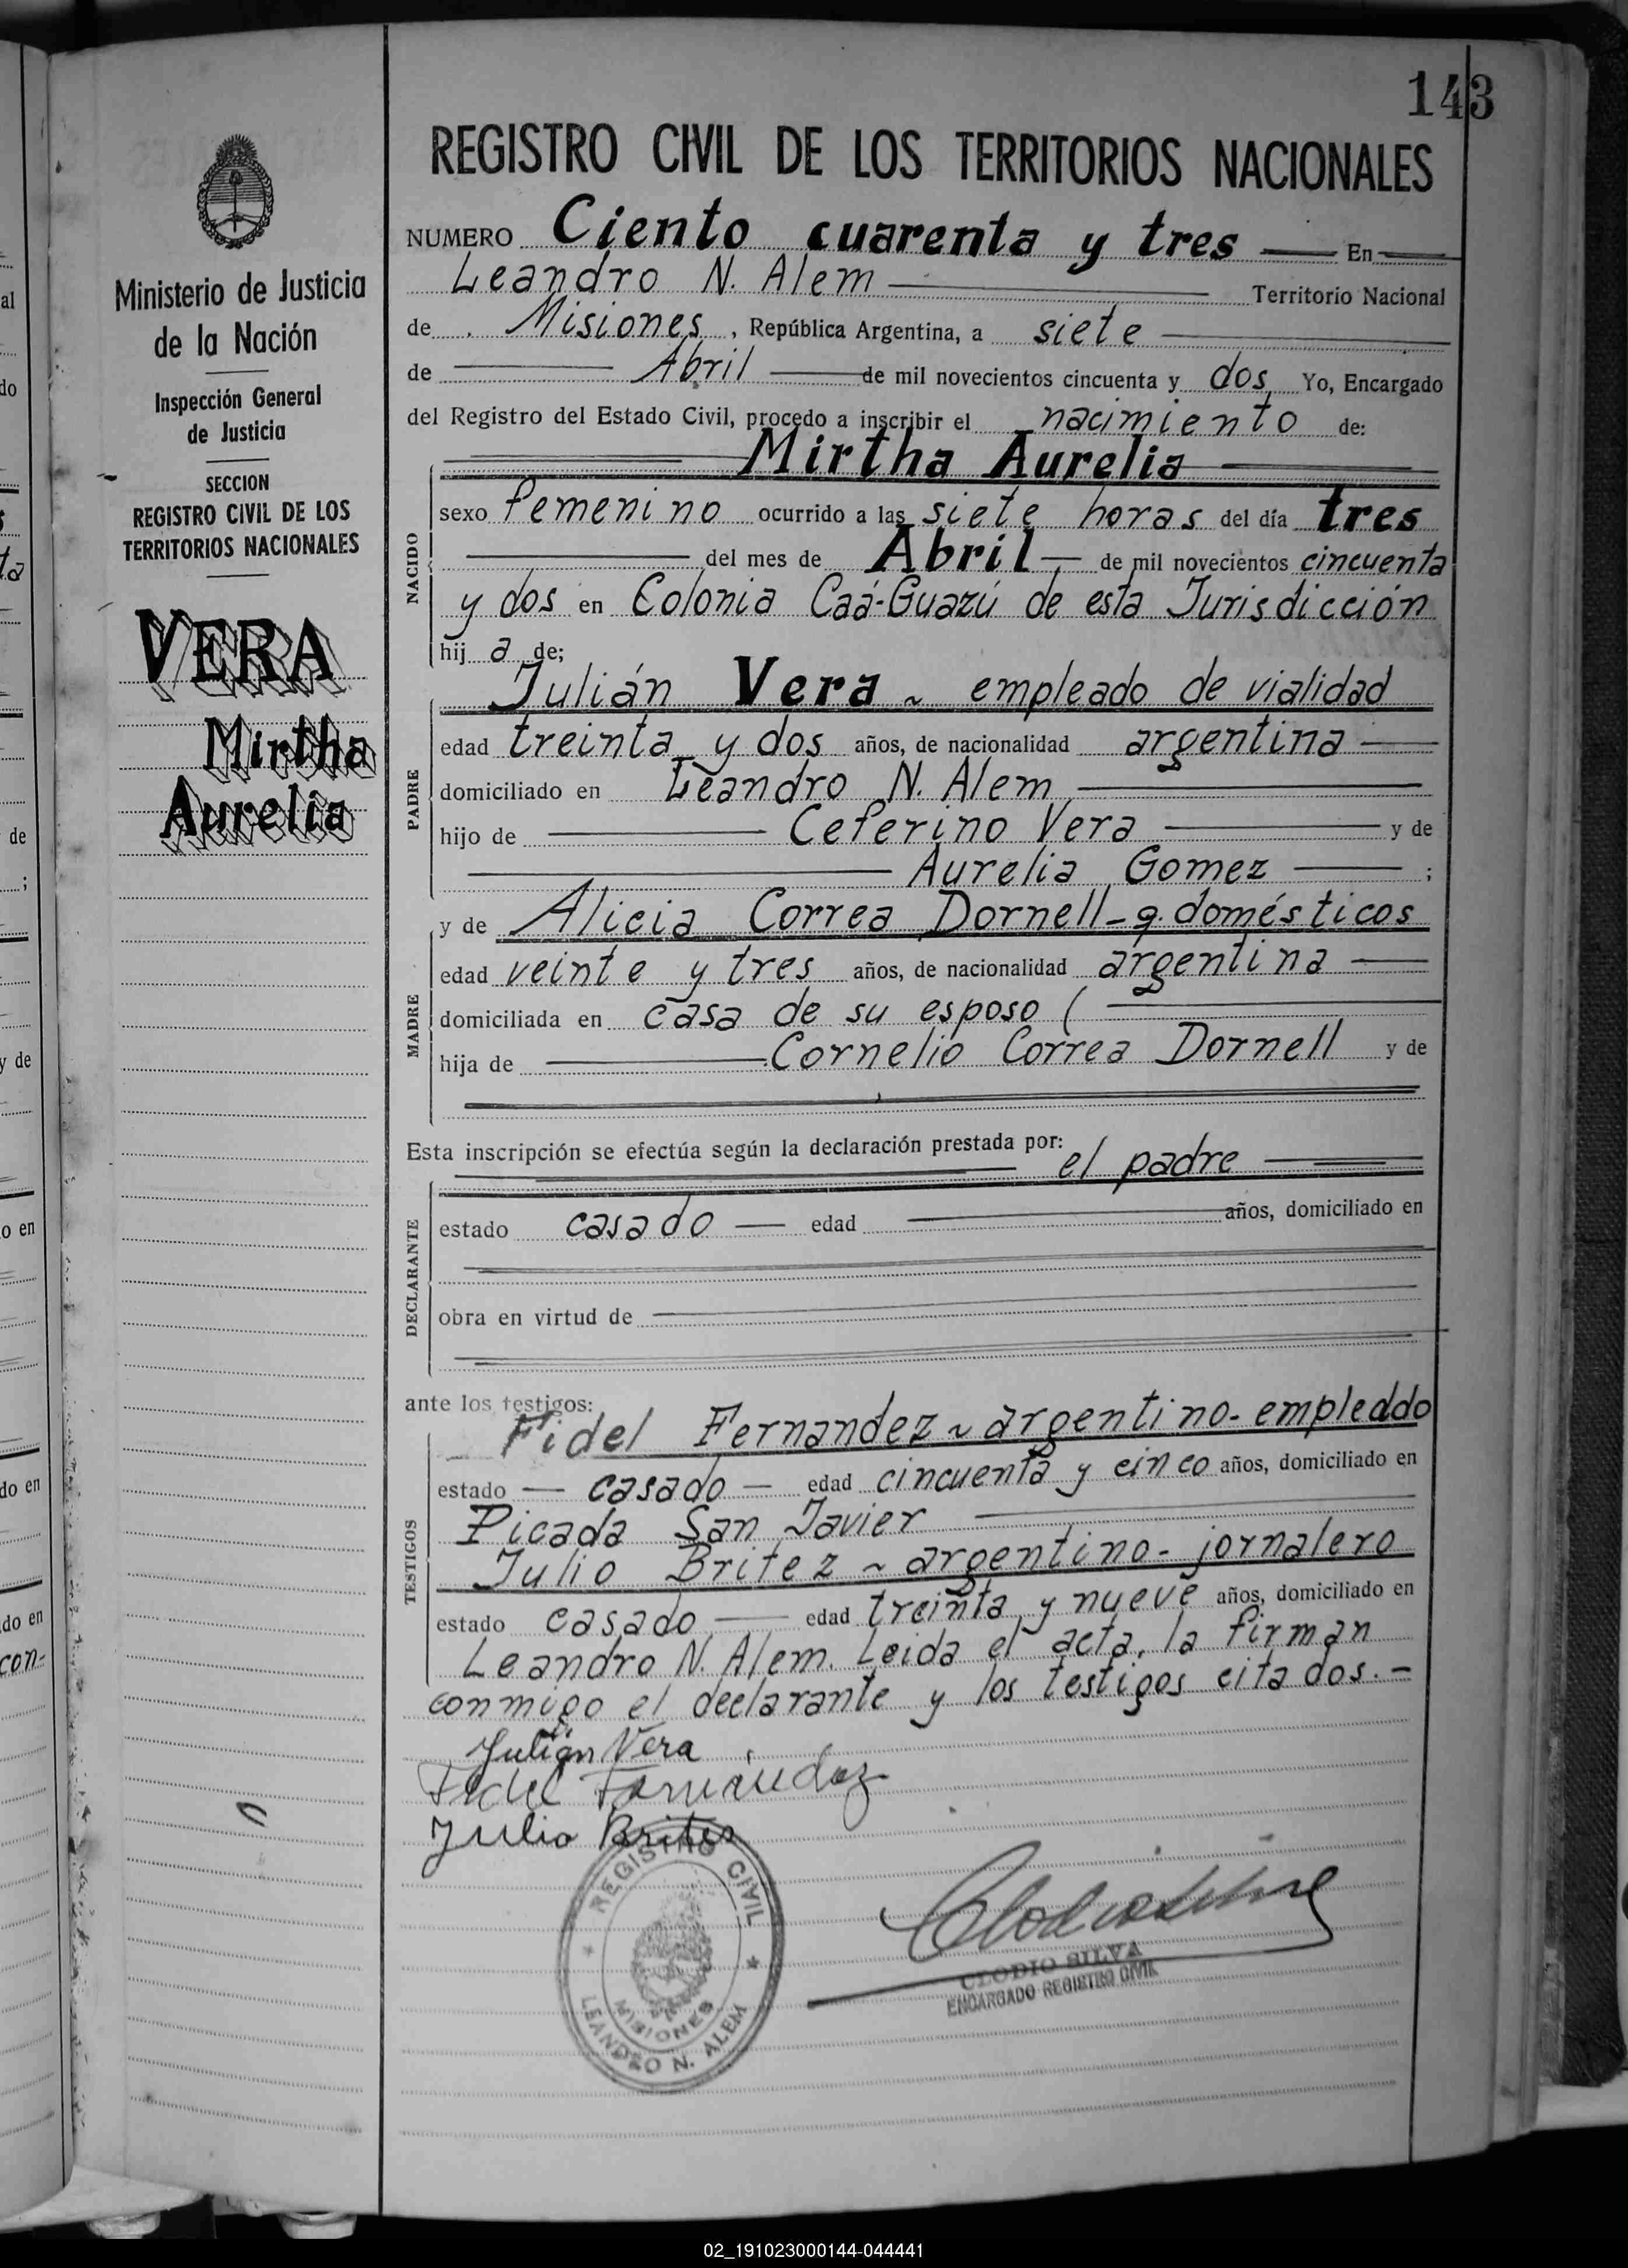 143
REGISTRO CIVIL DE LOS TERRITORIOS NACIONALES
Ministerio de Justicia
de la Nación
Inspección General
de Justicia
SECCION
REGISTRO CIVIL DE LOS
TERRITORIOS NACIONALES
VERA
Mirtha
Aurelia
NUMERO Ciento cuarenta y tres En
Leandro N. Alem Territorio Nacional
de Misiones, República Argentina, a siete
de Abril de mil novecientos cincuenta y dos Yo, Encargado
del Registro del Estado Civil, procedo a inscribir el nacimiento de:
NACIDO
Mirtha Aurelia
sexo femenino ocurrido a las siete horas del día tres
del mes de Abril de mil novecientos cincuenta
y dos en Colonia Caá-Guazú de esta Jurisdicción
hij a de;
PADRE
Julián Vera ~ empleado de vialidad
edad treinta y dos años, de nacionalidad argentina
domiciliado en Leandro N. Alem
hijo de Ceferino Vera y de
Aurelia Gomez ;
MADRE
y de Alicia Correa Dornell - q. domésticos
edad veinte y tres años, de nacionalidad argentina
domiciliada en casa de su esposo (
hija de Cornelio Correa Dornell y de
Esta inscripción se efectúa según la declaración prestada por: el padre
DECLARANTE
estado casado edad años, domiciliado en
obra en virtud de
ante los testigos:
TESTIGOS
Fidel Fernandez ~ argentino - empleado
estado casado edad cincuenta y cinco años, domiciliado en
Picada San Javier
Julio Britez ~ argentino - jornalero
estado casado edad treinta y nueve años, domiciliado en
Leandro N. Alem. Leida el acta, la firman
conmigo el declarante y los testigos citados.-
Julián Vera
Fidel Fernández
Julio Brites
REGISTRO CIVIL
MISIONES
LEANDRO N. ALEM
CLODIO SILVA
ENCARGADO REGISTRO CIVIL
al
do
ta
de
;
y de
o en
do en
do en
con-
02_191023000144-044441